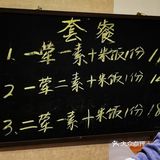 套餐
1.一荤一素+米饭1份
2.一荤二素+米饭1份
3.二荤一素+米饭1份 18
大众点评